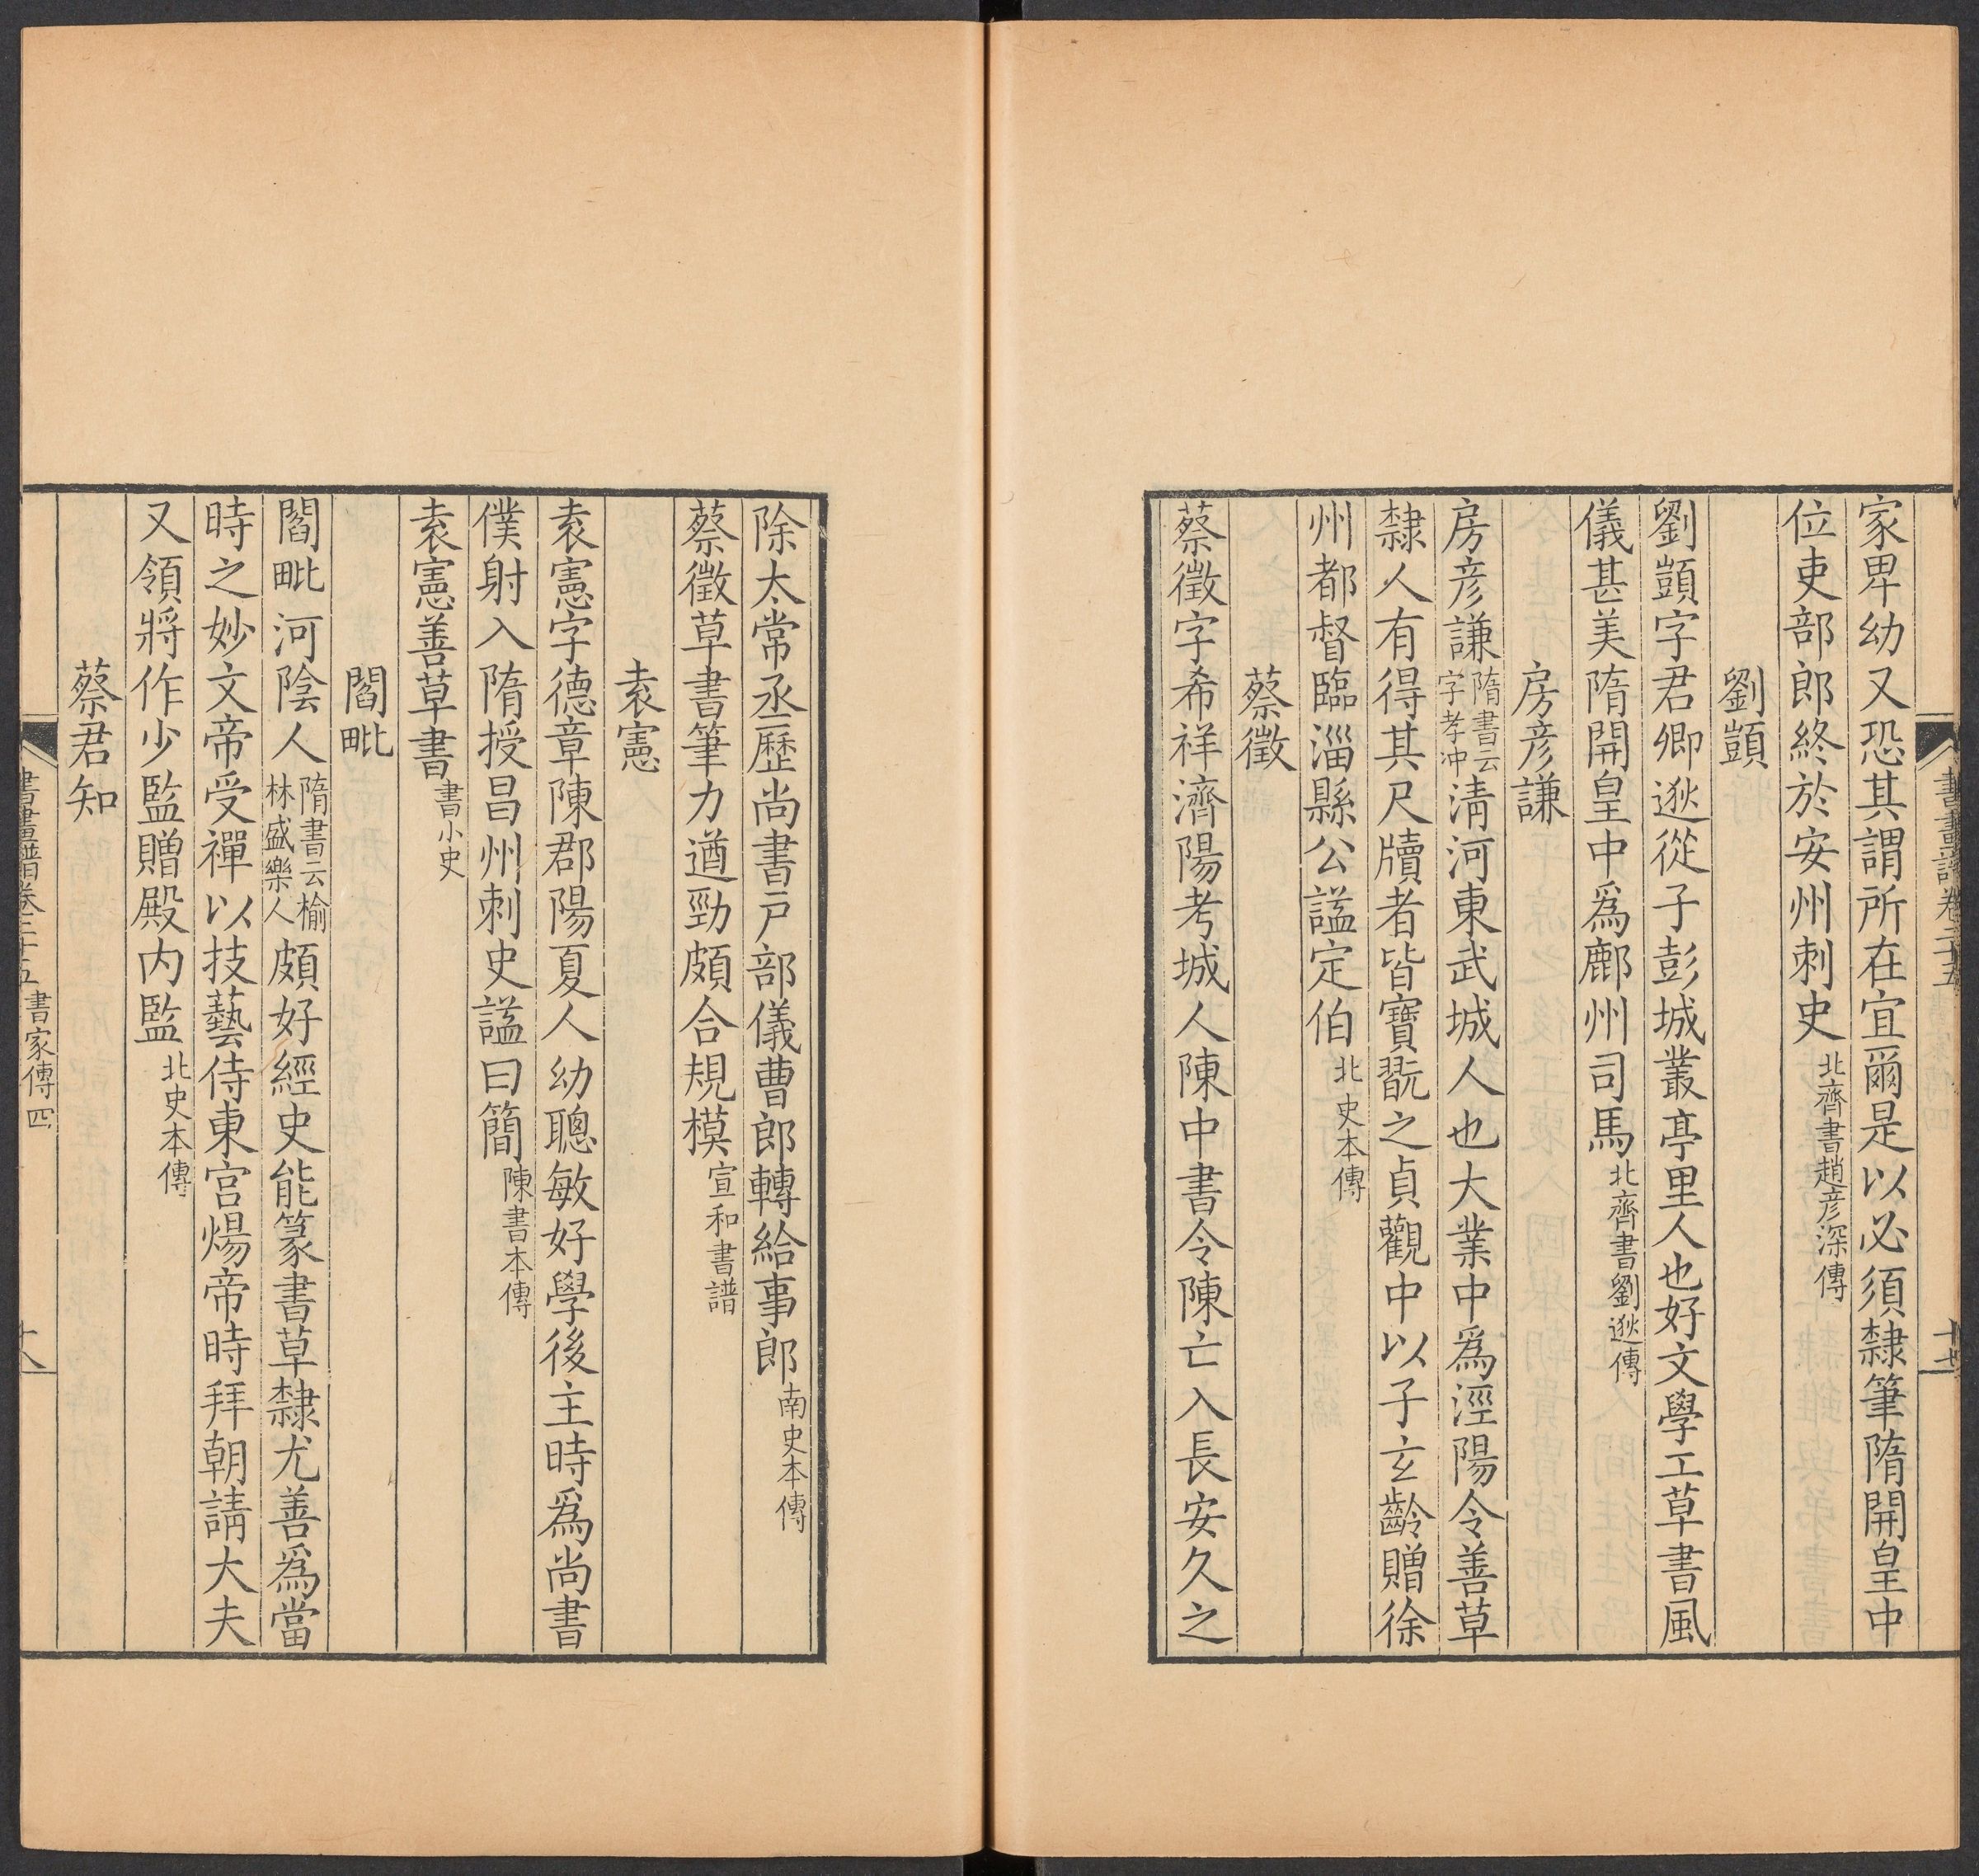 書畫譜卷三十五
十七
家卑幼又恐其謂所在宜爾是以必須隸筆隋開皇中
位吏部郎終於安州刺史北齊書趙彦深傳
劉顗
劉顗字君卿逖從子彭城叢亭里人也好文學工草書風
儀甚美隋開皇中爲鄜州司馬北齊書劉逖傳
房彦謙
房彦謙隋書云字孝冲清河東武城人也大業中爲涇陽令善草
隸人有得其尺牘者皆寶翫之貞觀中以子玄齡贈徐
州都督臨淄縣公謚定伯北史本傳
蔡徵
蔡徵字希祥濟陽考城人陳中書令陳亡入長安久之
除太常丞歷尚書戸部儀曹郎轉給事郎南史本傳
蔡徵草書筆力遒勁頗合規模宣和書譜
袁憲
袁憲字德章陳郡陽夏人幼聰敏好學後主時爲尚書
僕射入隋授昌州刺史謚曰簡陳書本傳
袁憲善草書書小史
閻毗
閻毗河陰人隋書云榆林盛樂人頗好經史能篆書草隸尤善爲當
時之妙文帝受禪以技藝侍東宮煬帝時拜朝請大夫
又領將作少監贈殿内監北史本傳
蔡君知
書畫譜卷三十五 書家傳四
十八